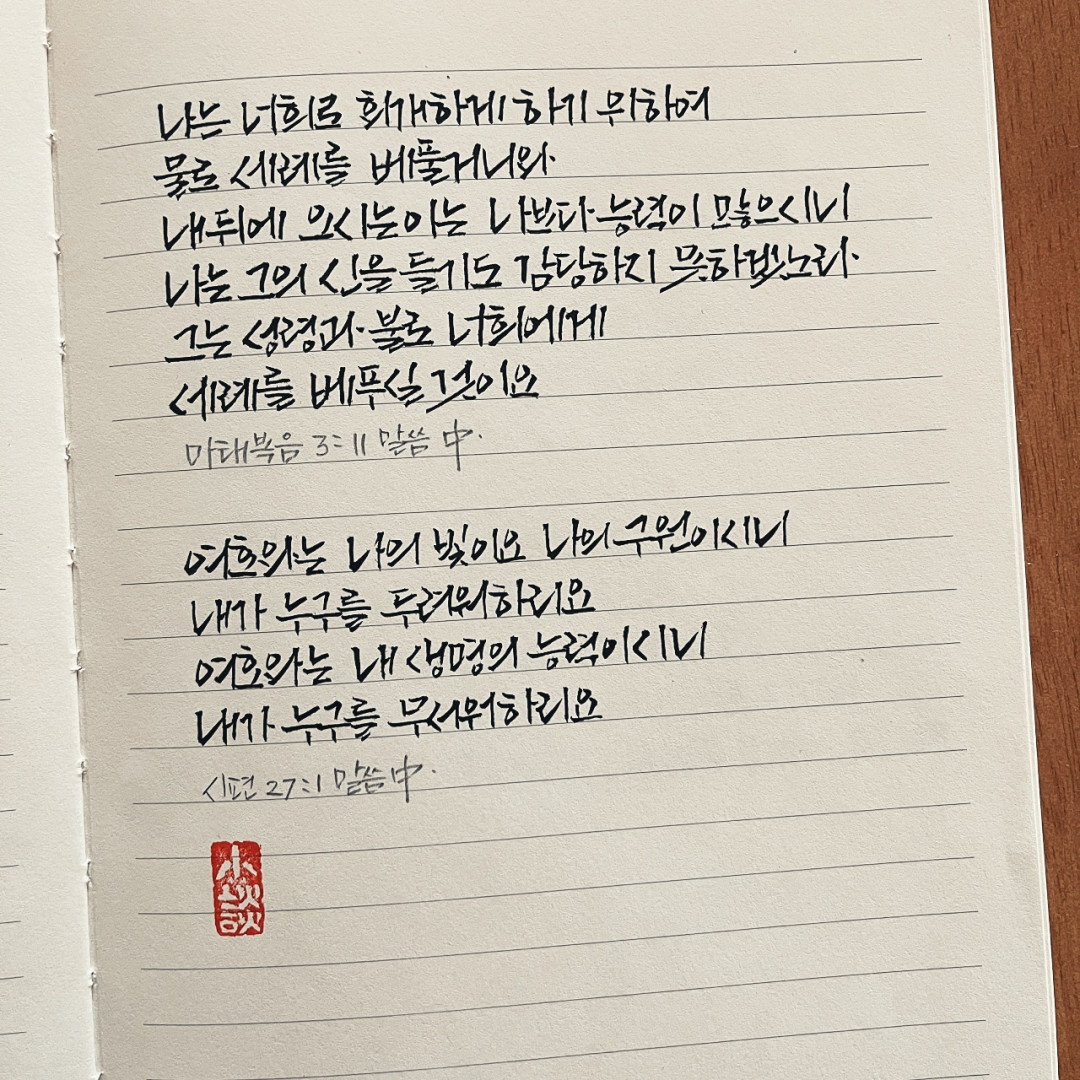 나는 너희로 회개하게 하기 위하여
물로 세례를 베풀거니와
내뒤에 오시는이는 나보다 능력이 많으시니
나는 그의 신을 들기도 감당하지 못하겠노라.
그는 성령과 불로 너희에게
세례를 베푸실 것이요
마태복음 3:11 말씀 中.
여호와는 나의 빛이요 나의 구원이시니
내가 누구를 두려워하리요
여호와는 내 생명의 능력이시니
내가 누구를 무서워하리요
시편 27:1 말씀 中.
小談